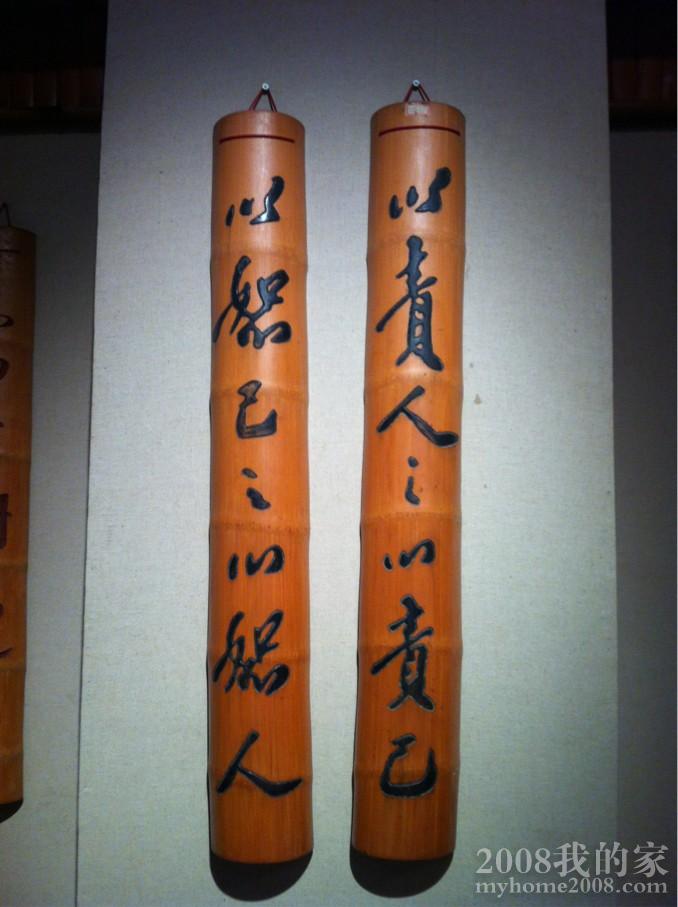 以責人之心責己
以恕己之心恕人
2008我的家
myhome2008.com